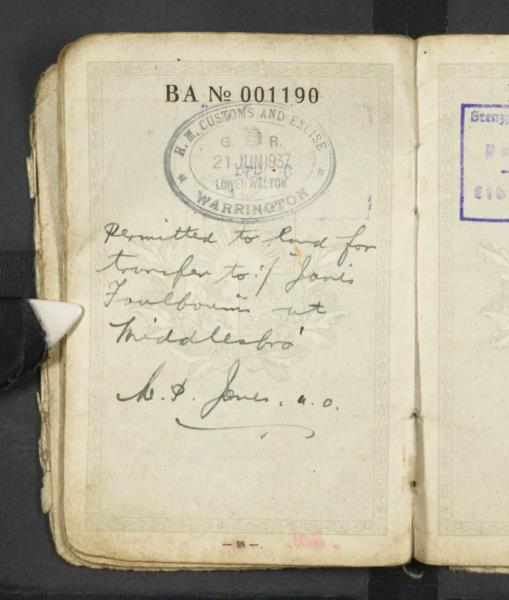 BA № 001190
H. M. CUSTOMS AND EXCISE
G. R.
21 JUN 1937
LOWER WALTON
WARRINGTON
Permitted to land for
transfer to s/s Janis
Faulbaums at
Middlesbro'
Jones. a. o.
— 18 —
Grenzp